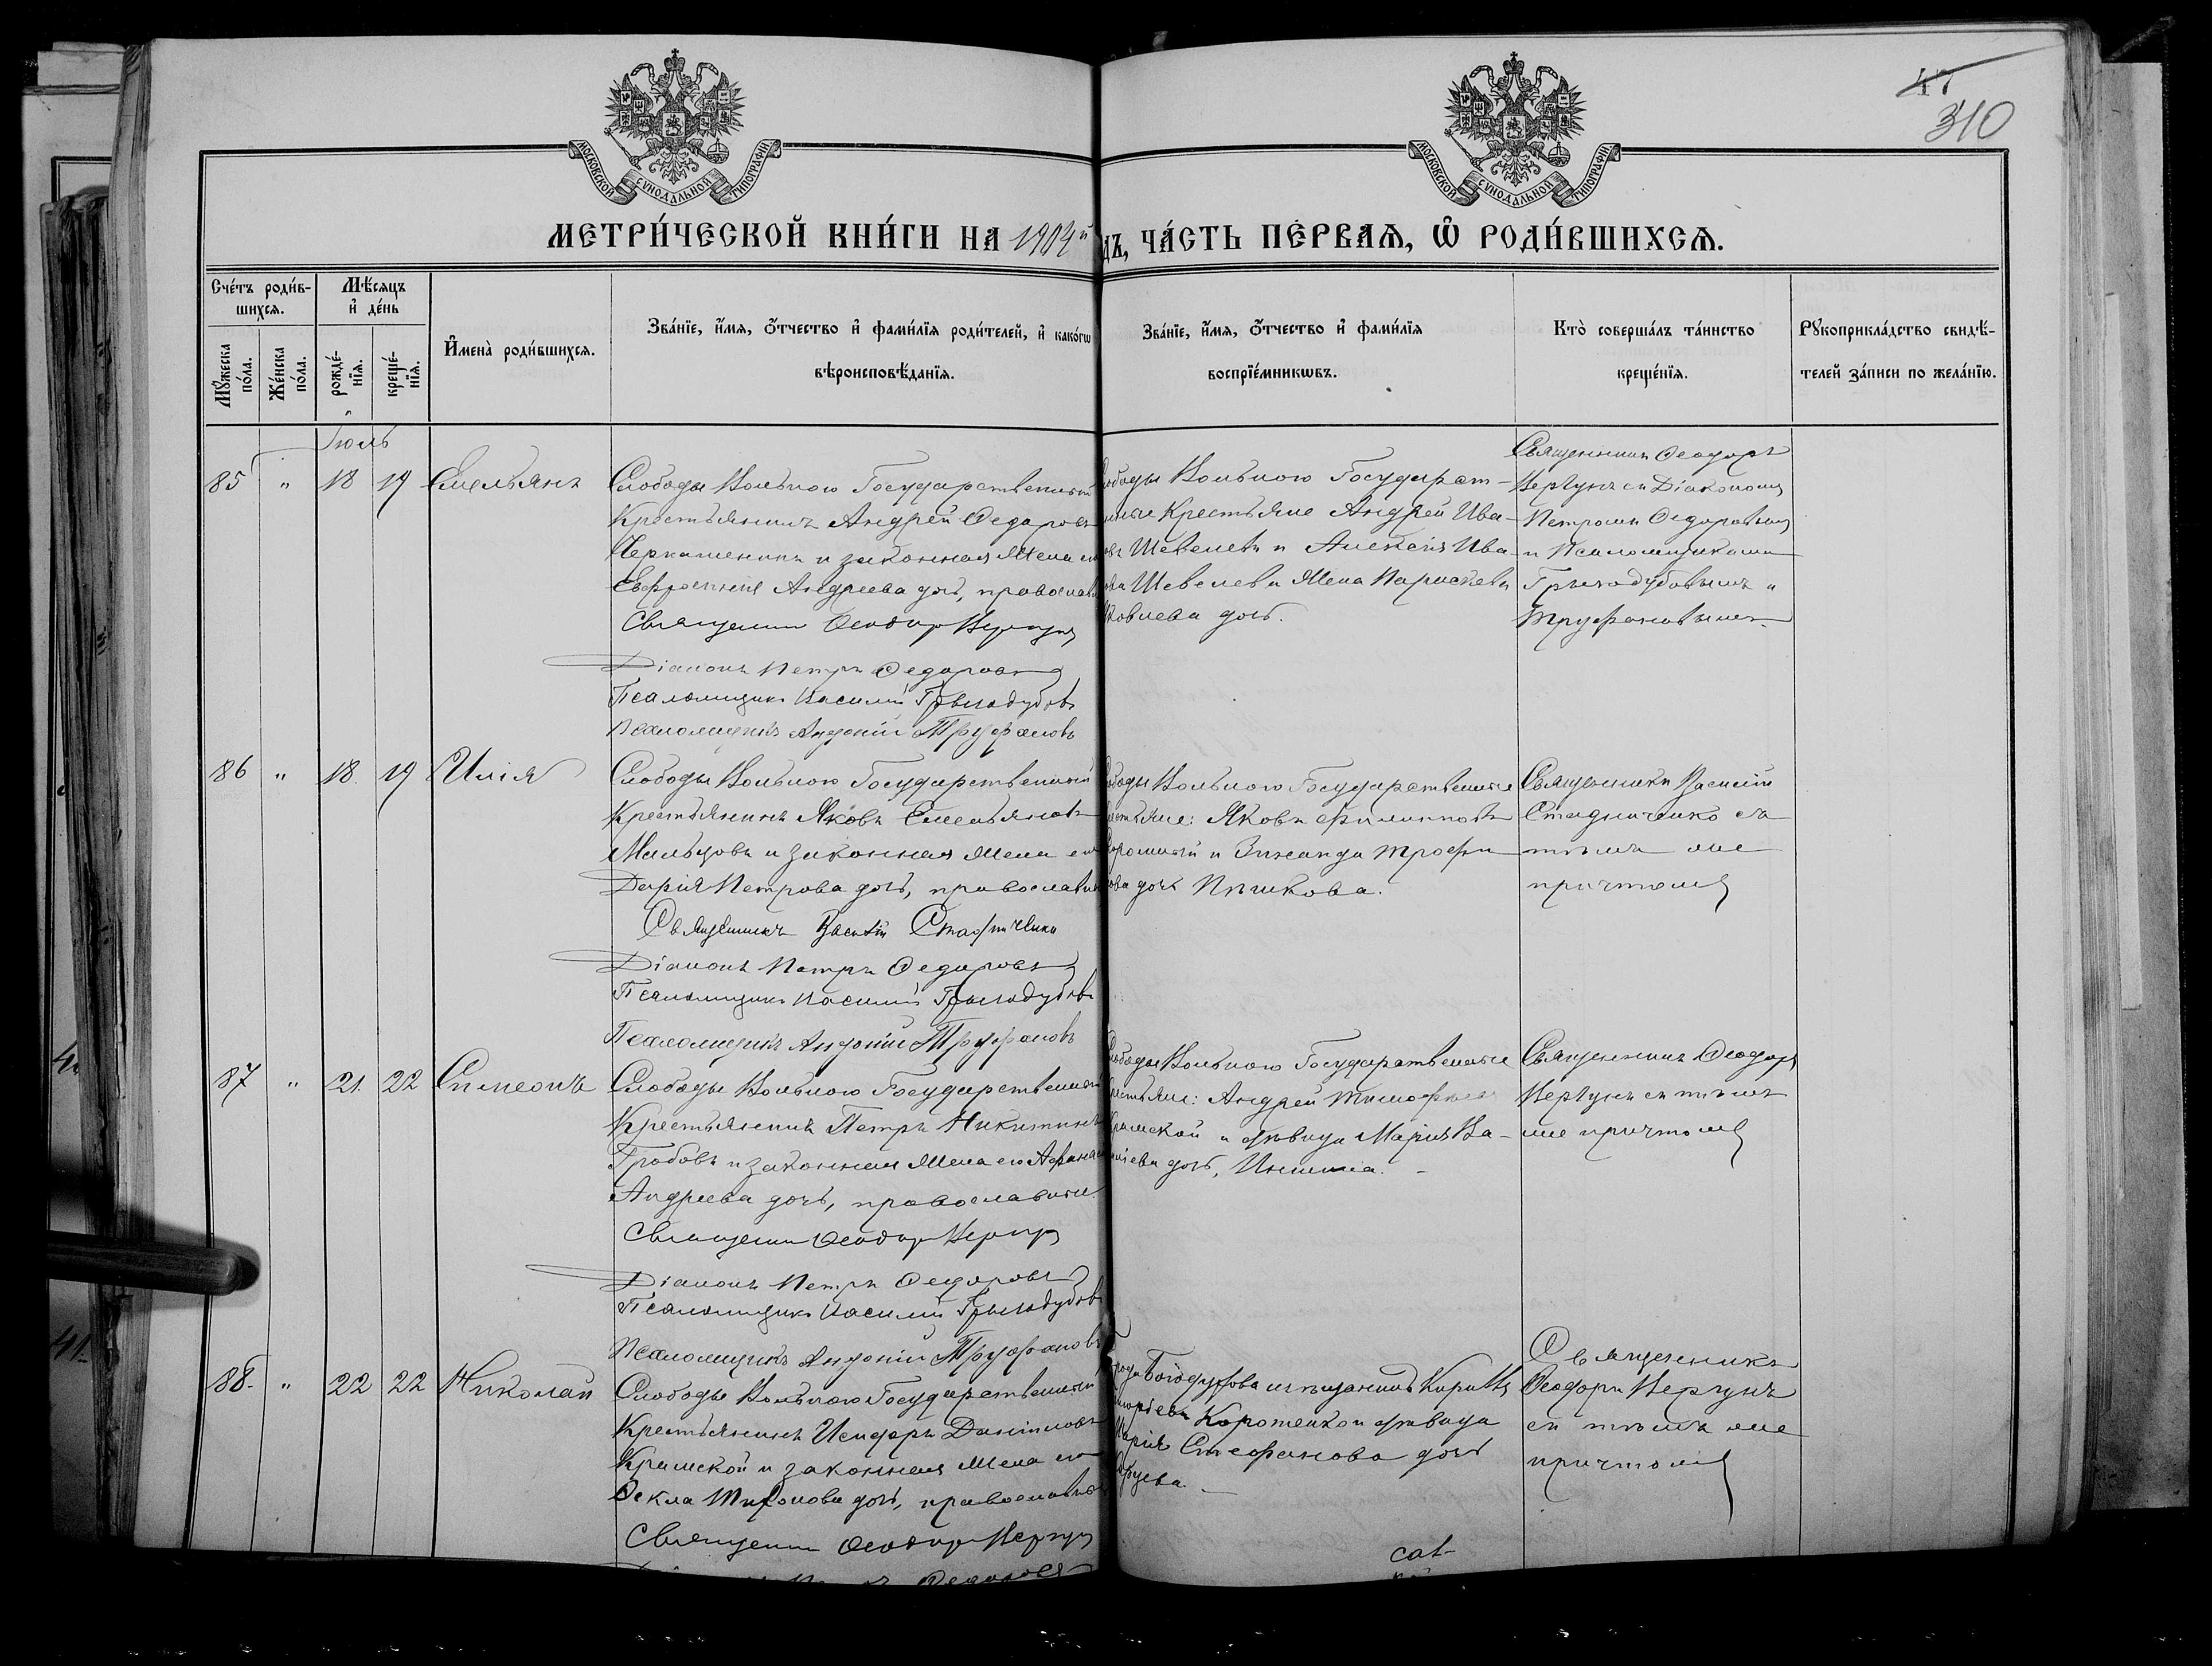 47
310
МОСКОВСКОЙ СѴНОДАЛЬНОЙ ТИПОГРАФІИ
МОСКОВСКОЙ СѴНОДАЛЬНОЙ ТИПОГРАФІИ
МЕТРИ́ЧЕСКОЙ КНИ́ГИ НА 1904й
дъ, ЧА́СТЬ ПЕ́РВАѦ, Ѽ РОДИ́ВШИХСѦ.
Сче́тъ роди́в-
шихсѧ.
Мꙋ́жеска по́ла.
Же́нска по́ла.
Мѣ́сѧцъ
и҆ де́нь
рожде́-
нїѧ.
креще́-
нїѧ.
И҆мена̀ роди́вшихсѧ.
Зва́нїе, и҆́мѧ, ѻ҆́тчество и҆ фами́лїѧ роди́телей, и҆ како́гѡ
вѣроисповѣ́данїѧ.
Зва́нїе, и҆́мѧ, ѻ҆́тчество и҆ фами́лїѧ
воспрїе́мникѡвъ.
Кто̀ соверша́лъ та́инство
креще́нїѧ.
Рꙋкоприкла́дство свидѣ́-
телей за́писи по жела́нїю.
Іюль
85 " 18 19 Емельянъ
Слободы Вольного Государственный
Крестьянинъ Андрей Ѳедоровъ
и законная жена его
Евфросинія Андреева дочь, православн
Священникъ Ѳеодоръ Вергунъ
Діаконъ Петръ Ѳедоровъ
Псаломщикъ Василій Грызодубовъ
Псаломщикъ Антоній Труфановъ
ободы Вольного Государст-
нные Крестьяне Андрей Ива-
овъ Шевелевъ и Алексія Ива-
ова Шевелева жена Параскева
Яковлева дочь.
Священникъ Ѳеодоръ
Вергунъ съ Діакономъ
Петромъ Ѳедоровымъ
и Псаломщиками
Грызодубовымъ и
Труфановымъ
86 " 18 19 Илія
Слободы Вольного Государственный
Крестьянинъ Яковъ Емельяновъ
Мальцовъ и законная жена его
Дарія Петрова дочь, православн
Священникъ Василій Стадниченко
Діаконъ Петръ Ѳедоровъ
Псаломщикъ Василій Грызодубовъ
Псаломщикъ Антоній Труфановъ
ободы Вольного Государственные
естьяне: Яковъ Филипповъ
и Зинаида Трофи-
ова дочь
Священникъ Василій
Стадниченко съ
тѣмъ же
причтомъ
87 " 21 22 Симеонъ
Слободы Вольного Государственный
Крестьянинъ Петръ Никитинъ
Гробовъ и законная жена его
Андреева дочь, православные.
Священникъ Ѳеодоръ Вергунъ
Діаконъ Петръ Ѳедоровъ
Псаломщикъ Василій Грызодубовъ
Псаломщикъ Антоній Труфановъ
ободы Вольного Государственные
естьяне: Андрей Тимофеевъ
рымской и дѣвица Марія Ва-
иліева дочь,
Священникъ Ѳеодоръ
Вергунъ съ тѣмъ
же причтомъ
88. " 22 22 Николай
Слободы Вольного Государственный
Крестьянинъ Исидоръ Даніиловъ
Крымской и законная жена его
Ѳекла дочь, православные
Священникъ Ѳеодоръ Вергунъ
Ѳедоровъ
Богодухова мѣщанинъ
Коротенко и дѣвица
Марія Стефанова дочь
Священникъ
Ѳеодоръ Вергунъ
съ тѣмъ же
причтомъ